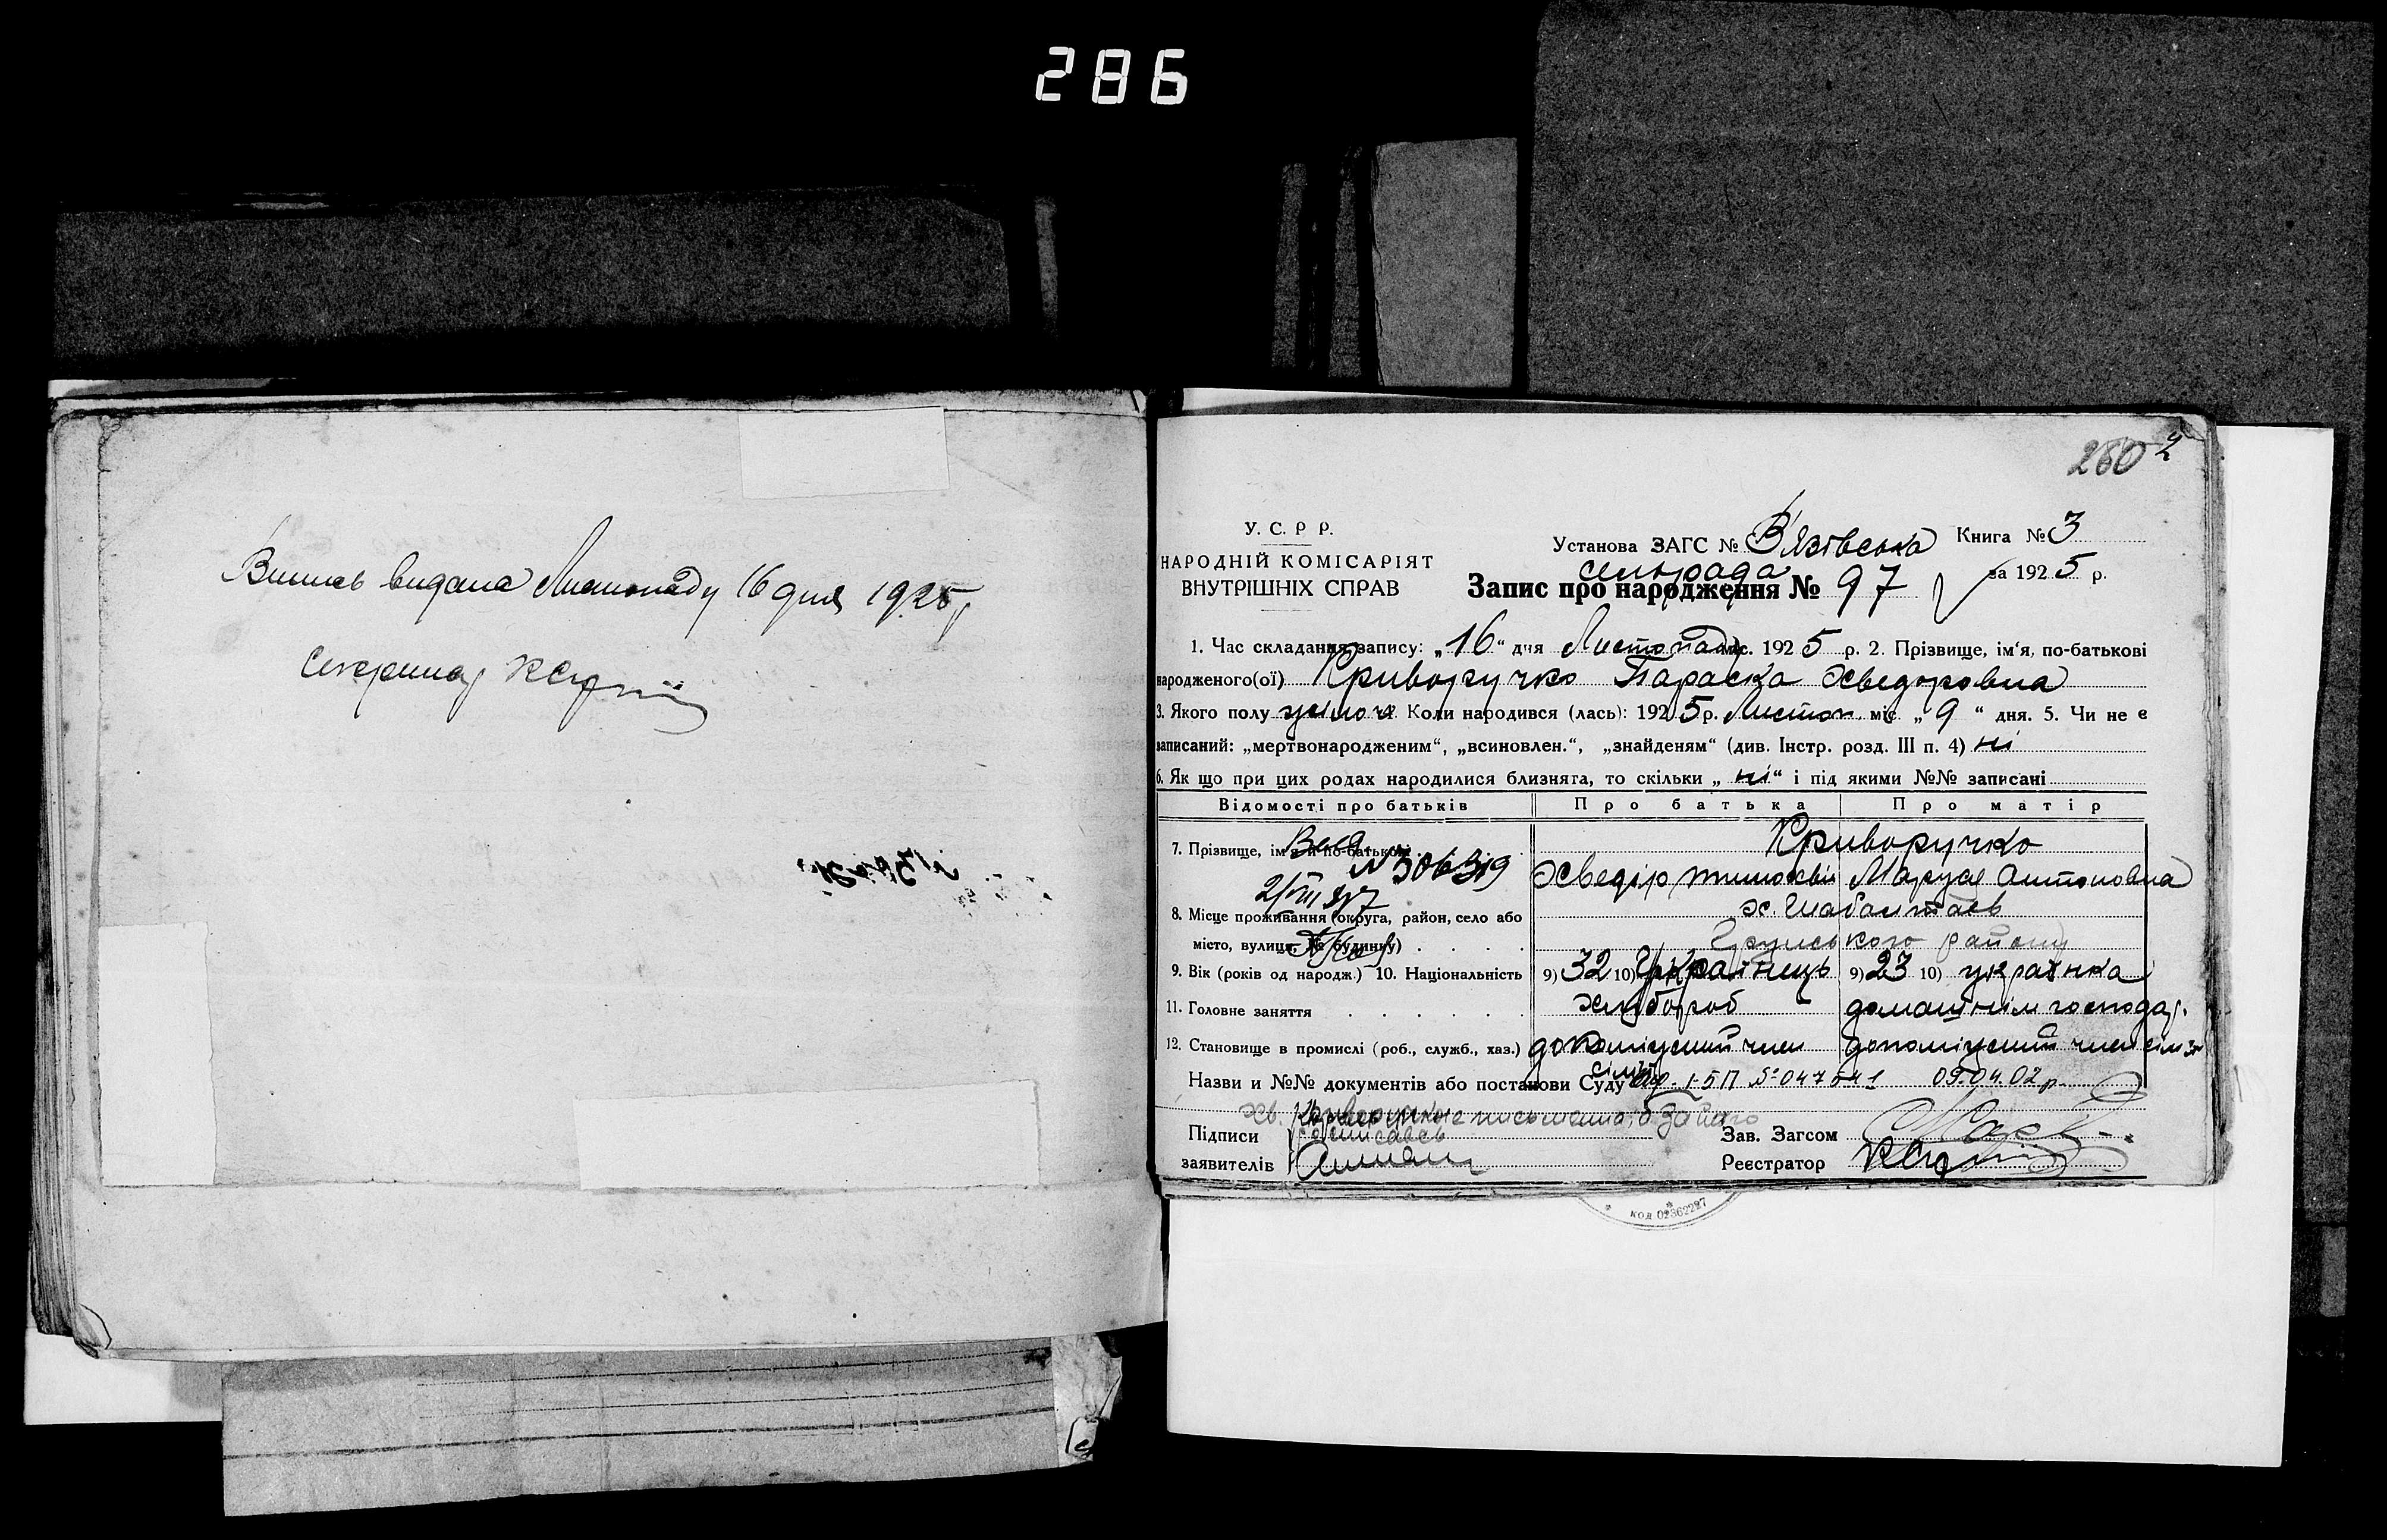 286
Випись видана Листопаду 16 дня 1925 р
Секретар
260
У. С. Р Р.
НАРОДНІЙ КОМІСАРІЯТ
ВНУТРІШНІХ СПРАВ
Установа ЗАГС № В'язівська Книга № 3
сельрада
за 1925 р.
Запис про народження № 97
1. Час складання запису: „16“ дня Листопада міс. 1925 р. 2. Прізвище, ім'я, по-батькові
народженого(ої) Криворучко Параска Хведоровна
3. Якого полу жіноч. Коли народився (лась): 1925 р. Листоп. міс „9“ дня. 5. Чи не є
записаний: „мертвонародженим“, „всиновлен.“, „знайденям“ (див. Інстр. розд. III п. 4) ні
6. Як що при цих родах народилися близняга, то скільки „ні“ і під якими №№ записані
Відомості про батьків Про батька Про матір
Криворучко
7. Прізвище, ім'я й по-батькові
№ 306319
Хведір Тимохвій Маруся Антоновна
8. Місце проживання (округа, район, село або
місто, вулиця, № будинку)
району
9. Вік (років од народж.) 10. Національність 9) 32 10) Українець 9) 23 10) українка
11. Головне заняття хлібороб домашнім господар.
12. Становище в промислі (роб., служб., хаз.) допоміжний член допоміжний член сім'ї
сім'ї
Назви и №№ документів або постанови Суду I-БП № 047541 09.04.02 р.
Хв. Криворучко
Підписи росписавсь Зав. Загсом
заявителів Реєстратор
код 02362227